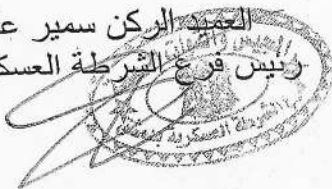 العميد الركن سمير
رئيس فرع الشرطة
الشرطة العسكرية بدمشق